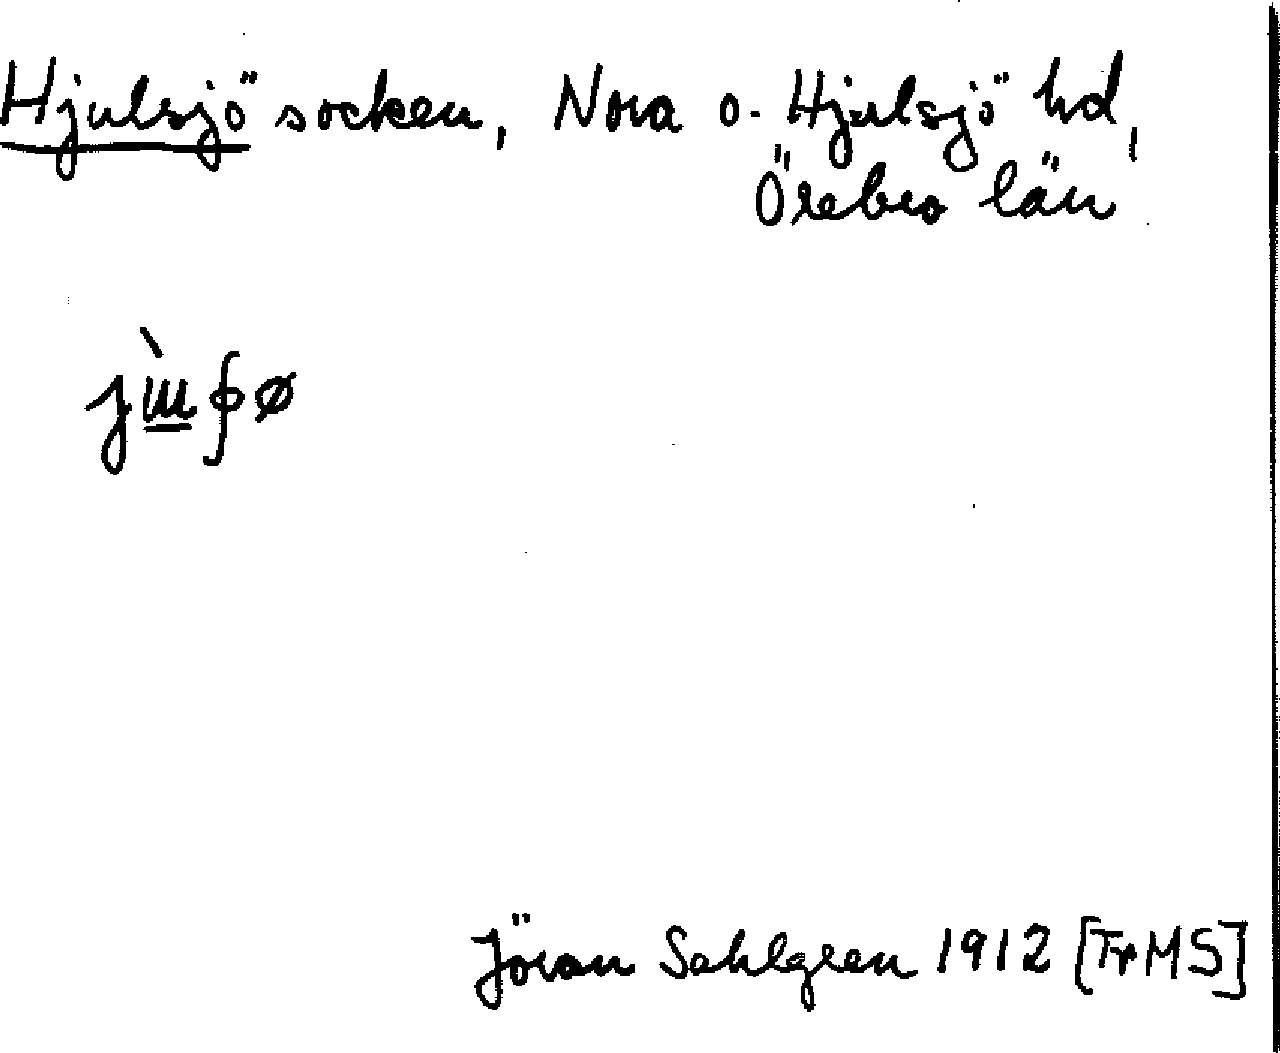 Hjulsjö socken, Nora o. Hjulsjö hd,
Örebro län
Jöran Sahlgren 1912 [TrMS]